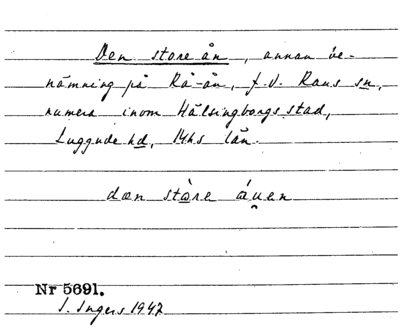 Den store ån, annan be-
nämning på Rå-ån, f.d. Raus sn,
numera inom Hälsingborgs stad,
Luggude hd, Mhs län.
dæn stòre áuen
Nr 5691.
I. Ingers 1947